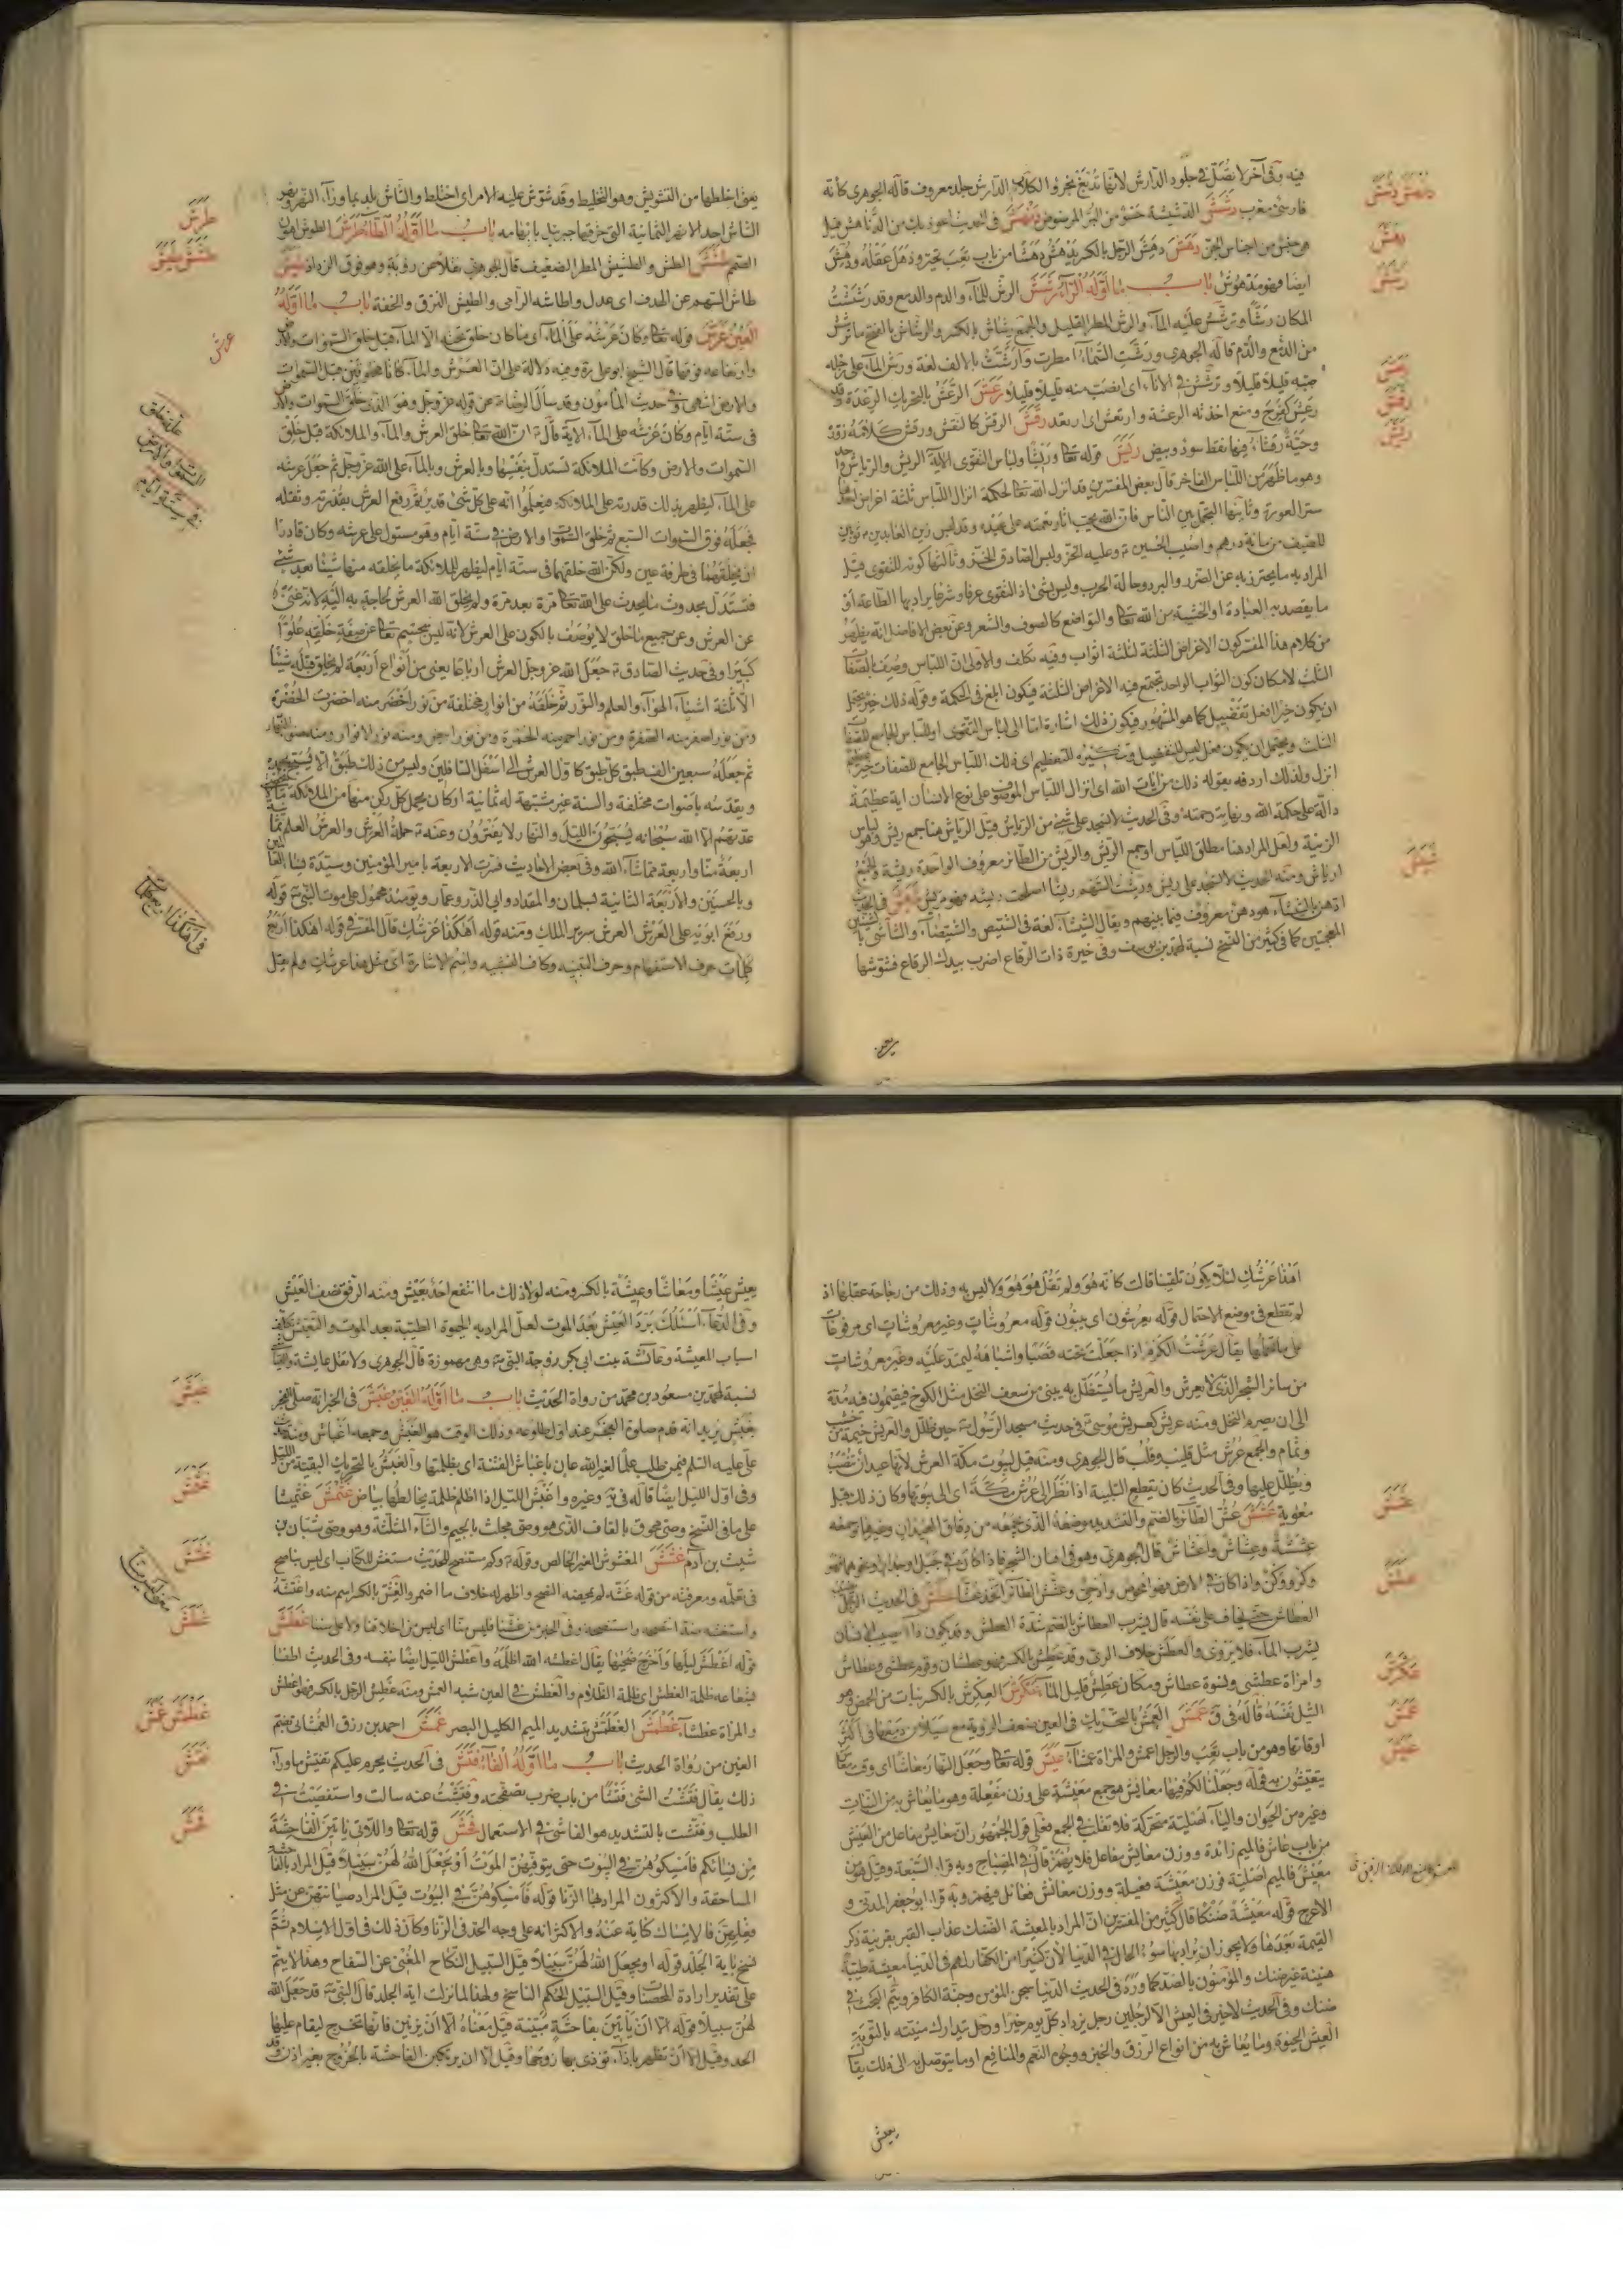 فيه وفى آخر لا تصلّ فى جلود الدّارش لانها تدبغ بخرؤ الكلاب الدّارش جلد معروف قاله الجوهرى كأنه
فارسىّ معرب دشش الدشيشة حسو من البرّ المرضوض
من اجناس الجنّ دهش دهش الرّجل بالكسر يدهش دهشا من باب تعب تحيّر وذهل عقله ودهش
ايضا فهو مدهوش باب ما اوّله الرّاء رشش الرشّ للماء والدم والدمع وقد رششت
المكان رشّا وترشّش عليه الماء والرش المطر القليل والجمع رشاش بالكسر والرشاش بالفتح ما ترشّش
من الدّمع والدّم قاله الجوهرى ورشّت السّماء امطرت وارشّت بالالف لغة ورش الماء على رجله
قليلا قليلا وترشّش فى الاناء اى انصبّ منه قليلا قليلا رعش الرّعش بالتحريك الرّعدة وقد
رعش كفرح ومنع اخذته الرعشة وارتعش اى ارتعد رقش الرقش كالنقش ورقش كلامه زوّره
وحيّة رقشاء فيها نقط سود وبيض ريش قوله تعا وريشا ولباس التقوى الآية الريش والرياش واحد
وهو ما ظهر من اللّباس الفاخر قال بعض المفسّرين قد انزل الله تعا لحكمة انزال اللّباس ثلثة اغراض احدها
ستر العورة وثانيها التجمّل بين النّاس فانّ الله يحبّ ان يرى نعمته على عبده وقد لبس زين العابدين ثوبين
للصّيف من مائة درهم واصيب الحسين وعليه الخزّ ولبس الصّادق الخزّ وثالثها كونه للتّقوى قيل
المراد به ما يحترز به عن الضرر والبرد وحالة الحرب وليس بشئ اذ التقوى عرفا وشرعا يراد بها الطّاعة او
ما يقصد به العبادة او الخشية من الله تعا والتواضع كالصوف والشعر وعن بعض الافاضل انه يظهر
من كلام هذا المفسّر كون الاغراض الثلثة لثلثة اثواب وفيه تكلف والاولى انّ اللّباس وصف بالصّفات
الثلث لامكان كون الثّواب الواحد تجتمع فيه الاغراض الثلثة فيكون ابلغ فى الحكمة وقوله ذلك خير يحتمل
ان يكون خير افعل تفضيل كما هو المشهور فيكون ذلك اشارة امّا الى لباس التّقوى او للّباس الجامع للصفات
الثلث ويحتمل ان يكون ليس للتفضيل وتنكيره للتعظيم اى ذلك اللّباس الجامع للصّفات خير
انزل ولذلك اردفه بقوله ذلك من آيات الله اى انزال اللّباس الموصوف على نوع الانسان آية عظيمة
دالّة على حكمة الله ونهاية رحمته وفى الحديث لا تسجد على شئ من الرياش قيل الرّياش هنا جمع ريش وهو لباس
الزينة ولعلّ المراد هنا مطلق اللّباس او جمع الرّيش والرّيش من الطّائر معروف الواحدة ريشة والجمع
ارياش ومنه الحديث لا تسجد على ريش ورشت السّهم ريشا اصلحت ريشه فهو مريش
نسبة لمحمد بن يوسف وفى خيرة ذات الرّقاع اضرب بيدك الرقاع فشوّشها
دهش
رعش
رقش
ريش
يعنى اخلطها من التشويش وهو التخليط وقد شوّش عليه الامر اى اختلط والشّاش بلد بما وراء النّهر ونهر
الشاش احد الانهر الثمانية التى خرقها جبرئيل بابهامه باب ما اوّله الطّاء طرش الطرش اهون
الصّمم طشش الطشّ والطشيش المطر الضعيف قال الجوهرى نقلا عن رؤبة وهو فوق الرذاذ طيش
طاش السّهم عن الهدف اى عدل واطاشه الرّامى والطيش النزق والخفة باب ما اوّله
العين عرش قوله تعا وكان عرشه على الماء اى ما كان خلق تحته الّا الماء قبل خلق السّموات والارض
وارتفاعه فوقها قال الشيخ ابو على ره وفيه دلالة على ان العرش والماء كانا مخلوقين قبل السّموات
والارض انتهى وفى حديث المأمون وقد سأل الرّضا عن قوله عزّ وجل وهو الذى خلق السّموات والارض
فى ستّة ايّام وكان عرشه على الماء الآية قال انّ الله تعا خلق العرش والماء والملائكة قبل خلق
السّموات والارض وكانت الملائكة تستدلّ بنفسها وبالعرش وبالماء على الله عزّ وجلّ ثم جعل عرشه
على الماء ليظهر بذلك قدرته على الملائكة فيعلموا انّه على كلّ شئ قدير ثم رفع العرش بقدرته ونقله
فجعله فوق السّموات السّبع ثم خلق السّموات والارض فى ستّة ايّام وهو مستول على عرشه وكان قادرا
ان يخلقهما فى طرفة عين ولكن الله خلقها فى ستّة ايّام ليظهر للملائكة ما يخلقه منها شيئا بعد شئ
فتستدلّ بحدوث ما يحدث على الله تعا مرّة بعد مرّة ولم يخلق الله العرش لحاجة به اليه لانه غنىّ
عن العرش وعن جميع ما خلق لا يوصف بالكون على العرش لانه ليس بجسم تعا عن صفة خلقه علوّا
كبيرا وفى حديث الصّادق جعل الله عزّ وجلّ العرش ارباعا يعنى من انواع اربعة لم يخلق قبله شيئا
الّا ثلثة اشياء الهواء والعلم والنّور ثم خلقه من انوار مختلفة من نور اخضر منه اخضرت الخضرة
ومن نور اصفر منه الصّفرة ومن نور احمر منه الحمرة ومن نور ابيض ومنه نور الانوار ومنه ضوء النّهار
ثم جعله سبعين الف طبق كلّ طبق كأوّل العرش الى اسفل السّافلين وليس من ذلك طبق الّا يسبّح
ويقدّسه باصوات مختلفة والسنة غير مشتبهة له ثمانية اركان يحمل كلّ ركن منها من الملائكة ما لا
عددهم الّا الله سبحانه يسبّحون اللّيل والنّهار لا يفترون وعنه حملة العرش والعرش العلم ثمانية
اربعة منّا واربعة ممّن شاء الله وفى بعض الاحاديث فسّرت الاربعة بامير المؤمنين وسيّدة نساء العالمين
وبالحسنين والأربعة الثانية بسلمان والمقداد وابى الذّر وعمّار وهو محمول على موت النّبىّ قوله
ورفع ابويه على العرش العرش سرير الملك ومنه قوله اهكذا عرشك قال المفسّر فى قوله اهكذا اربع
كلمات حرف الاستفهام وحرف التنبيه وكاف التشبيه واسم الاشارة اى مثل هذا عرشك ولم يقل
طرش
طشش طيش
عرش
اهذا عرشك لئلّا يكون تلقينا قالت كأنّه هو ولم تقل هو هو ولا ليس به وذلك من رجاحة عقلها اذ
لم تقطع فى موضع الاحتمال قوله يعرشون اى يبنون قوله معروشات وغير معروشات اى مرفوعات
على ما يحملها يقال عرشت الكرم اذا جعلت تحته قصبا واشباهه ليمتدّ عليه وغير معروشات
من سائر الشجر الذى لا يعرش والعريش ما يستظلّ به يبنى من سعف النخل مثل الكوخ فيقيمون فيه مدّة
الى ان يصرم النخل ومنه عريش كعريش موسى فى حديث مسجد الرّسول حين ظلّل والعريش خيمة من خشب
وثمام والجمع عرش مثل قليب وقلب قال الجوهرى ومنه قيل لبيوت مكّة العرش لانّها عيدان تنصب
ويظلّل عليها وفى الحديث كان يقطع التلبية اذا نظر الى عرش مكّة اى الى بيوتها وكان ذلك قبل
معوية عشش عشّ الطّائر بالضّم والتشديد موضعه الذى يجمعه من دقاق العيدان وغيرها وجمعه
عششة وعشاش واعشاش قال الجوهرى وهو فى افنان الشّجر فاذا كان فى جبل او جدار او نحوهما فهو
وكر ووكن واذا كان فى الارض فهو افحوص وادحىّ وعشّش الطّائر اتّخذ عشّا عطش فى الحديث
العطاش حتّى يخاف على نفسه قال يشرب العطاش بالضّم شدّة العطش وقد يكون داء يصيب الانسان
يشرب الماء فلا يروى والعطش خلاف الرىّ وقد عطش بالكسر فهو عطشان وقوم عطشى وعطاش
وامراة عطشى ونسوة عطاش ومكان عطش قليل الماء عكرش العكرش بالكسر نبات من الحمض وهو
الثيّل نفسه قاله فى ق عمش العمش بالتّحريك فى العين ضعف الرؤية مع سيلان دمعها فى اكثر
اوقاتها وهو من باب تعب والرجل اعمش والمراة عمشاء عيش قوله تعا وجعلنا النّهار معاشا اى وقت معاش
يتعيّشون به قوله وجعلنا لكم فيها معايش هو جمع معيشة على وزن مفعلة وهو ما يعاش به من النّبات
وغيره من الحيوان والياء اصليّة متحرّكة فلا تقلب فى الجمع فعلى قول الجمهور ان معايش مفاعل من العيش
من باب عاش فالميم زائدة ووزن معايش مفاعل فلا يهمز قال فى المصباح وبه قرأ السّبعة وقيل هو من
معش فالميم اصليّة فوزن معيشة فعيلة ووزن معائش فعائل فيهمز وبه قرأ ابو جعفر المدنى و
الاعرج قوله معيشة ضنكا قال كثير من المفسّرين انّ المراد بالمعيشة الضّنك عذاب القبر بقرينة ذكر
القيمة بعدها ولا يجوز ان يراد بها سوء الحال فى الدّنيا لانّ كثيرا من الكفّار لهم فى الدّنيا معيشة طيّبة
هنيئة غير ضنك والمؤمنون بالضدّ كما ورد فى الحديث الدّنيا سجن المؤمن وجنّة الكافر
ضنك وفى الحديث لا خير فى العيش الّا لرجلين رجل يزداد كلّ يوم خيرا ورجل يتدارك منيّته بالتّوبة
العيش الحيوة وما يعاش به من انواع الرّزق والخبز ووجوه النّعم والمنافع او ما يتوصّل به الى ذلك يقال
يعيش
عشش
عطش
عكرش
عمش
عيش
يعيش عيشا ومعاشا وعيشة بالكسر ومنه لولا ذلك ما انتفع احد بعيش ومنه الرّفق نصف العيش
وفى الدّعاء اسئلك برد العيش بعد الموت لعلّ المراد به الحيوة الطيّبة بعد الموت والتعيّش تكلّف
اسباب المعيشة وعائشة بنت ابى بكر زوجة النّبىّ وهى مهموزة قال الجوهرى ولا تقل عايشة
نسبة لمحمّد بن مسعود بن محمّد من رواة الحديث باب ما اوّله الغين غبش فى الخبر انه صلّى الفجر
بغبش يريد انه قدم صلوة الفجر عند اوّل طلوعه وذلك الوقت هو الغبش وجمعه اغباش ومنه حديث
علىّ عليه السّلم فيمن طلب علما لغير الله عاد باغباش الفتنة اى بظلمتها والغبش بالتحريك البقيّة من اللّيل
وفى اوّل اللّيل ايضا قاله فى ق وغيره واغبش اللّيل اذا اظلم ظلمة يخالطها بياض
على ما فى النّسخ وصىّ محوق بالقاف الذى هو وصىّ مجلث بالجيم والثّاء المثلّثة وهو وصىّ شبّان بن
شيث بن آدم غشش المغشوش الغير الخالص وقوله وكم مستنصح للحديث مستغشّ للكتاب اى ليس بناصح
فى نقله ومعرفته من قوله غشّه لم يمحضه النّصح واظهر له خلاف ما اضمر والغشّ بالكسر اسم منه واغتشّه
واستغشّه ضدّ انتصحه واستنصحه وفى الخبر من غشّنا فليس منّا اى ليس من اخلاقنا ولا على سنّتنا غطش
قوله اغطش ليلها واخرج ضحيها يقال اغطشه الله اظلمه واغطش اللّيل ايضا بنفسه وفى الحديث اطفأ
بشعاعه ظلمة الغطش اى ظلمة الظّلام والغطش فى العين شبه العمش ومنه غطش الرّجل بالكسر فهو اغطش
والمراة غطشاء غطمش الغطمّش بتشديد الميم الكليل البصر غمش احمد بن رزق الغمشانى بضمّ
الغين من رواة الحديث باب ما اوّله الفاء فتش فى الحديث يحرم عليكم تفتيش ما وراء
ذلك يقال فتشت الشّئ فتشا من باب ضرب تصفّحته وفتّشت عنه سالت واستقصيت فى
الطلب وفتّشت بالتشديد هو الفاشى فى الاستعمال فحش قوله تعا واللّاتى يأتين الفاحشة
من نسائكم فامسكوهنّ فى البيوت حتى يتوفّيهنّ الموت او يجعل الله لهنّ سبيلا قيل المراد بالفاحشة
المساحقة والاكثرون المراد بها الزّنا قوله فامسكوهنّ فى البيوت قيل المراد صيانتهنّ عن مثل
فعلهنّ فالامساك كناية عنه والاكثر انه على وجه الحدّ فى الزّنا وكان ذلك فى اوّل الاسلام ثمّ
نسخ باية الجلد قوله او يجعل الله لهنّ سبيلا قيل السّبيل النّكاح المغنى عن السّفاح وهذا لا يتمّ
على تقدير ارادة المحصنات وقيل السّبيل الحكم النّاسخ ولهذا لمّا نزلت اية الجلد قال النّبىّ قد جعل الله
لهنّ سبيلا قوله الّا ان يأتين بفاحشة مبيّنة قيل معناه الّا ان يزنين فانّها تخرج ليقام عليها
الحدّ وقيل الّا ان تظهر باذاء تؤذى بها زوجها وقيل الّا ان يرتكبن الفاحشة بالخروج بغير اذن وقد
غبش
غشش
غطش
غطمش غمش
فتش
فحش